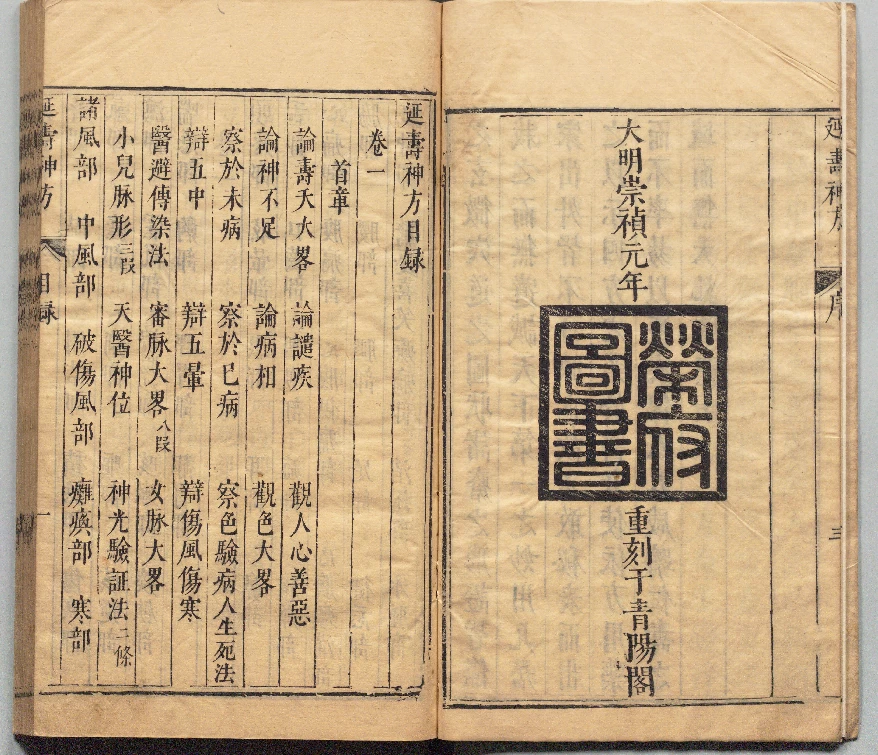 延壽神方 序
三
大明崇禎元年
榮府圖書
重刻于青陽閣
延壽神方目録
卷一
首章
論壽夭大畧 論譴疾 觀人心善惡
論神不足 論病相 觀色大畧
察於未病 察於已病 察色驗病人生死法
辯五中 辯五暈 辯傷風傷寒
醫避傳染法 審脉大畧八叚 女脉大畧
小兒脉形三叚 天醫神位 神光驗証法二條
諸風部 中風部 破傷風部 癱瘓部 寒部
延壽神方 目録 一